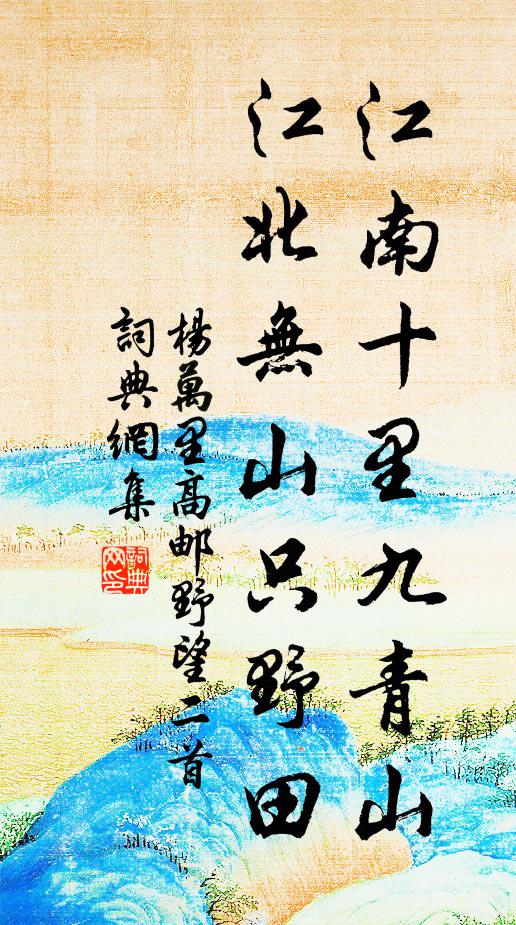 江南十里九青山
江北無山只野田
楊萬里高邮野望二首
詞典網集
詞典网印